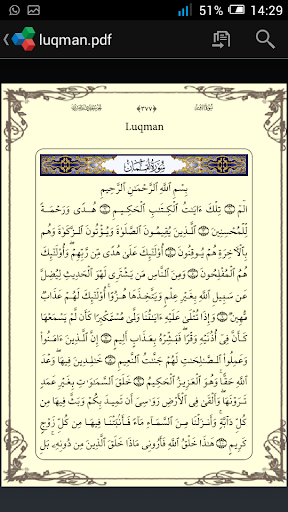 51% 14:29
luqman.pdf
﴿٣٧٧﴾
Luqman
سُورَةُ لُقْمَانَ
بِسْمِ ٱللَّهِ ٱلرَّحْمَـٰنِ ٱلرَّحِيمِ
الٓمٓ ۝ تِلْكَ ءَايَـٰتُ ٱلْكِتَـٰبِ ٱلْحَكِيمِ ۝ هُدًى وَرَحْمَةً
لِّلْمُحْسِنِينَ ۝ ٱلَّذِينَ يُقِيمُونَ ٱلصَّلَوٰةَ وَيُؤْتُونَ ٱلزَّكَوٰةَ وَهُم
بِٱلْـَٔاخِرَةِ هُمْ يُوقِنُونَ ۝ أُو۟لَـٰٓئِكَ عَلَىٰ هُدًى مِّن رَّبِّهِمْ ۖ وَأُو۟لَـٰٓئِكَ
هُمُ ٱلْمُفْلِحُونَ ۝ وَمِنَ ٱلنَّاسِ مَن يَشْتَرِى لَهْوَ ٱلْحَدِيثِ لِيُضِلَّ
عَن سَبِيلِ ٱللَّهِ بِغَيْرِ عِلْمٍ وَيَتَّخِذَهَا هُزُوًا ۚ أُو۟لَـٰٓئِكَ لَهُمْ عَذَابٌ
مُّهِينٌ ۝ وَإِذَا تُتْلَىٰ عَلَيْهِ ءَايَـٰتُنَا وَلَّىٰ مُسْتَكْبِرًا كَأَن لَّمْ يَسْمَعْهَا
كَأَنَّ فِىٓ أُذُنَيْهِ وَقْرًا ۖ فَبَشِّرْهُ بِعَذَابٍ أَلِيمٍ ۝ إِنَّ ٱلَّذِينَ ءَامَنُوا۟
وَعَمِلُوا۟ ٱلصَّـٰلِحَـٰتِ لَهُمْ جَنَّـٰتُ ٱلنَّعِيمِ ۝ خَـٰلِدِينَ فِيهَا ۖ وَعْدَ
ٱللَّهِ حَقًّا ۚ وَهُوَ ٱلْعَزِيزُ ٱلْحَكِيمُ ۝ خَلَقَ ٱلسَّمَـٰوَٰتِ بِغَيْرِ عَمَدٍ
تَرَوْنَهَا ۖ وَأَلْقَىٰ فِى ٱلْأَرْضِ رَوَٰسِىَ أَن تَمِيدَ بِكُمْ وَبَثَّ فِيهَا مِن
كُلِّ دَآبَّةٍ ۚ وَأَنزَلْنَا مِنَ ٱلسَّمَآءِ مَآءً فَأَنۢبَتْنَا فِيهَا مِن كُلِّ زَوْجٍ
كَرِيمٍ ۝ هَـٰذَا خَلْقُ ٱللَّهِ فَأَرُونِى مَاذَا خَلَقَ ٱلَّذِينَ مِن دُونِهِۦ ۚ بَلِ